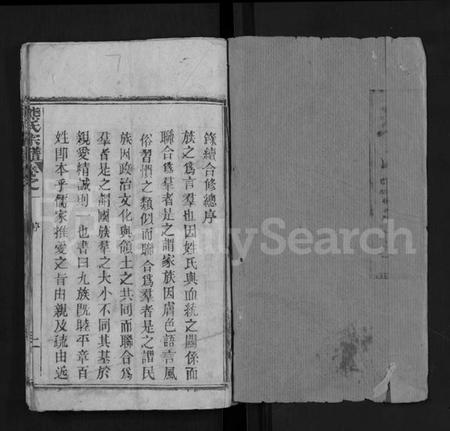 錄續合修總序
族之為言羣也因姓氏與血統之關係而
聯合為羣者是之謂家族因膚色語言風
俗習慣之類似而聯合為羣者是之謂民
族因政治文化與領土之共同而聯合為
羣者是之謂國族羣之大小不同其基於
親愛精誠則一也書曰九族既睦平章百
姓即本乎儒家推愛之旨由親及疏由近
氏宗譜卷之一
序
二
FamilySearch